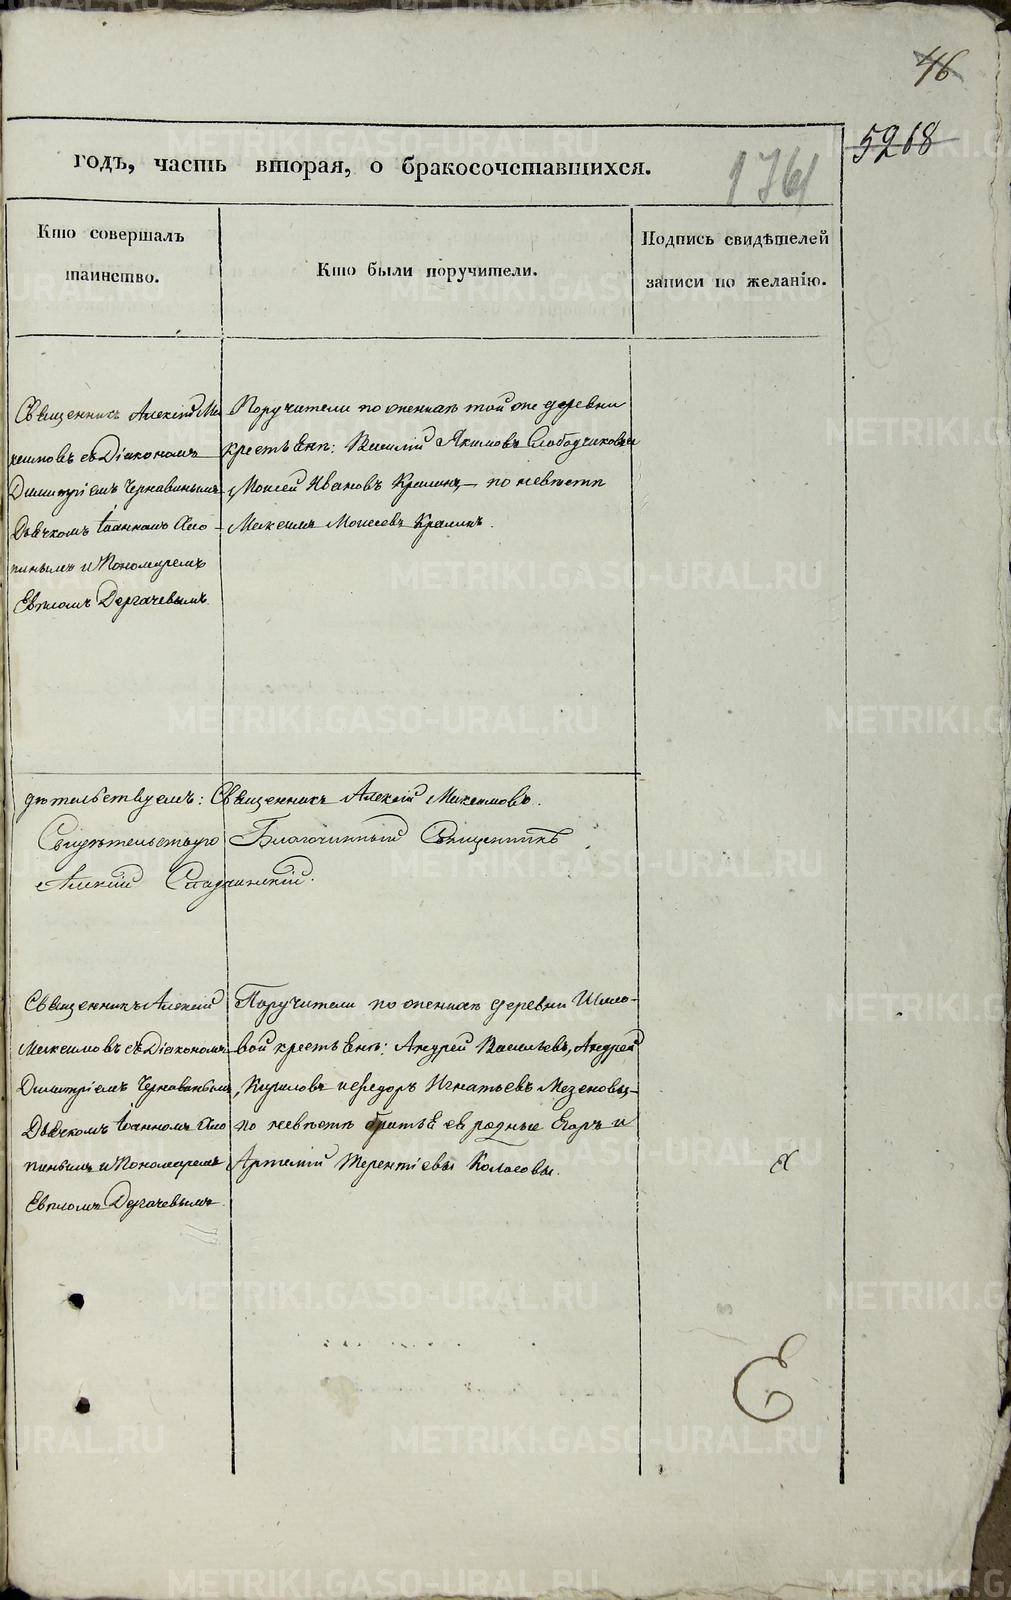 46
5268
годъ, часть вторая, о бракосочетавшихся.
1761
Кто совершалъ таинство.
Кто были поручители.
Подпись свидѣтелей записи по желанію.
Священникъ Алексій Ма-
ксимовъ съ Діакономъ
Димитріемъ Чернавинымъ
Дьячкомъ Іоанномъ
и Пономаремъ
Евпломъ Дергачевымъ
Поручители по женихѣ той же деревни
крестьяне: Василій Якимовъ Слободчиковъ и
Моисей Ивановъ Кралинъ, — по невѣстѣ
Максимъ Моисеевъ Кралинъ.
дѣтельствуемъ: Священникъ Алексій Максимовъ.
Свидѣтельствую Благочинный Священникъ
Алексій
Священникъ Алексій
Максимовъ съ Діакономъ
Димитріемъ Чернавинымъ,
Дьячкомъ Іоанномъ
и Пономаремъ
Евпломъ Дергачевымъ
Поручители по женихѣ деревни Шило-
вой крестьяне: Андрей Васильевъ, Андрей
Кириловъ и Ѳедоръ Игнатьевъ Мезеновы, —
по невѣстѣ братья ея родные Егоръ и
Артемій Терентіевы Колосовы.
METRIKI.GASO-URAL.RU